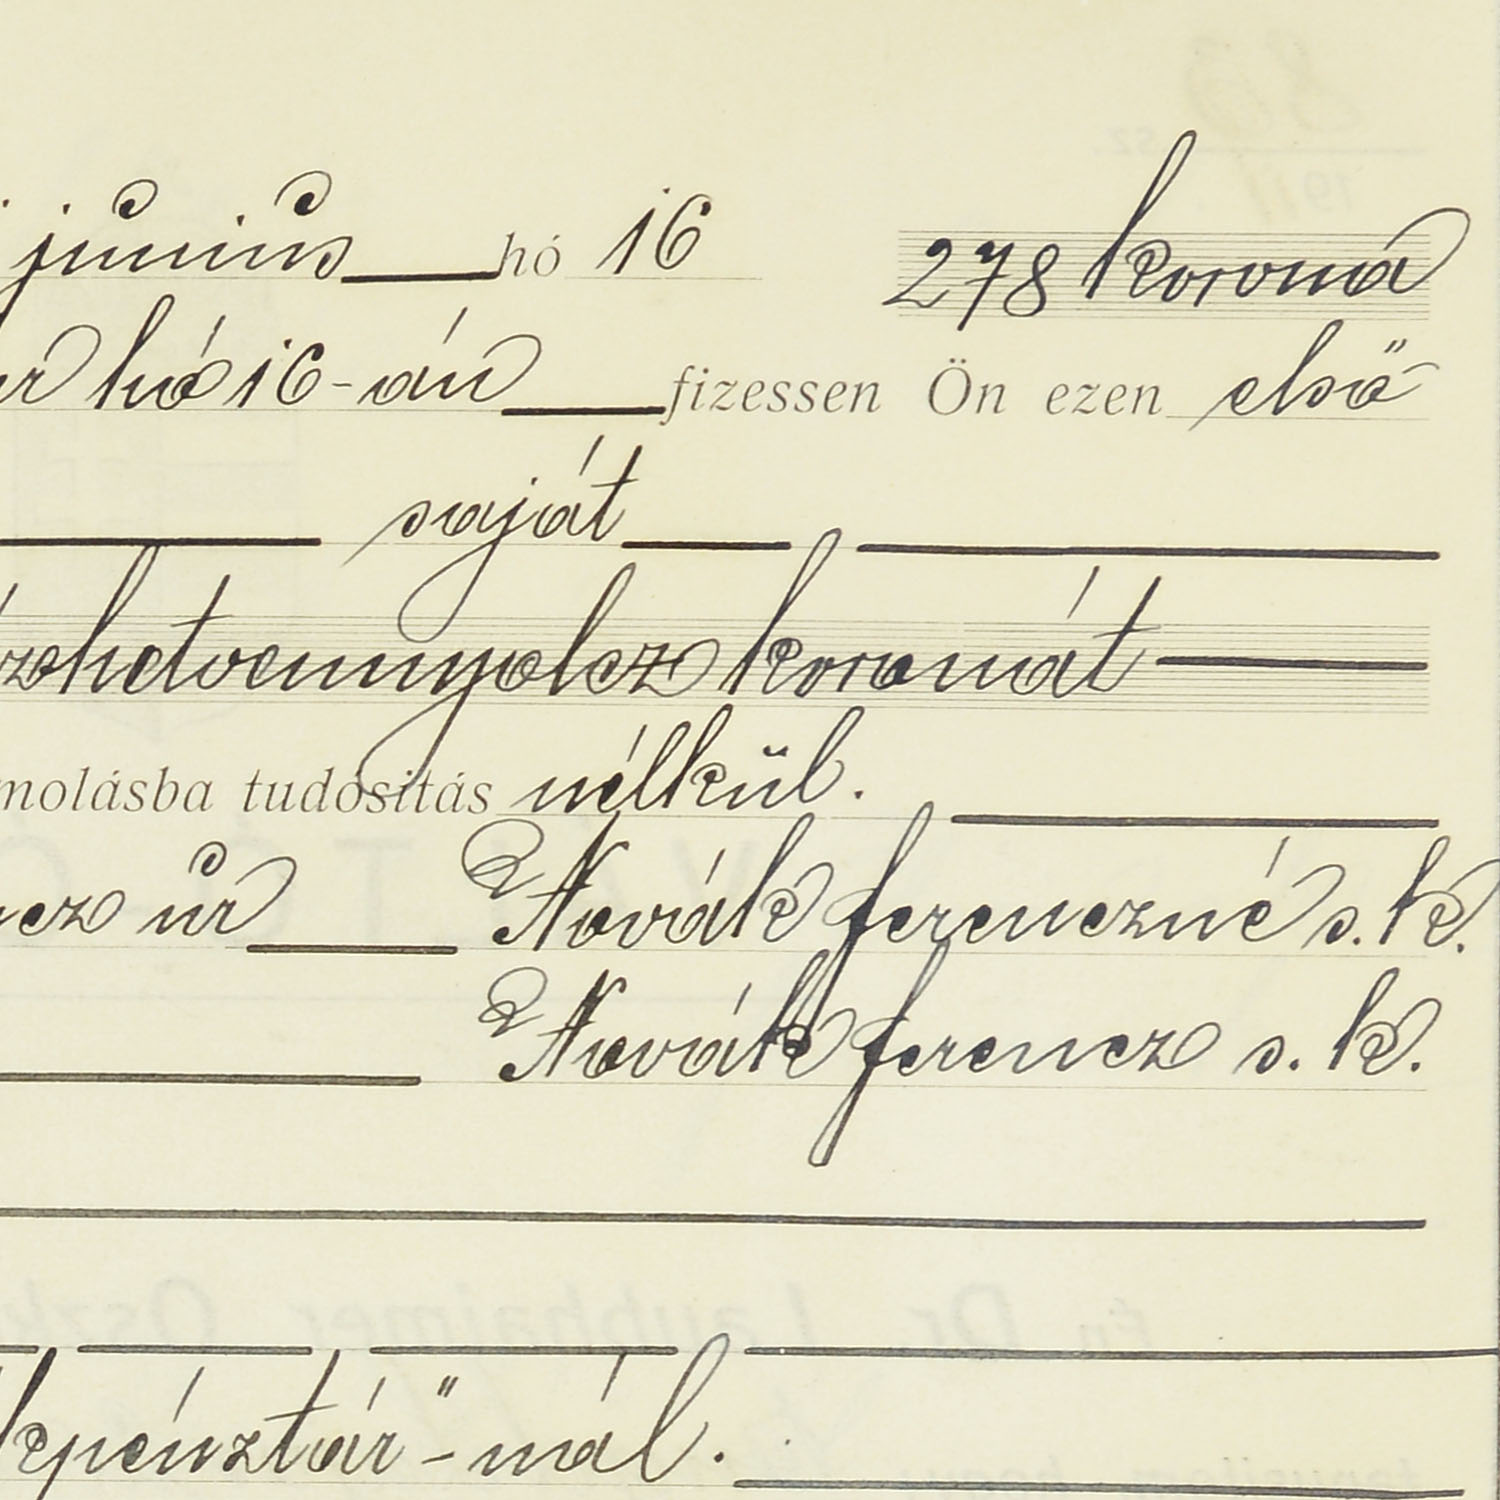 június hó 16 278 korona
hó 16-án fizessen Ön ezen első
saját
zhetvennyolcz koronát
molásba tudósitás nélkül.
cz úr Novák Ferenczné s. k.
Novák Ferencz s. k.
kpénztár"-nál.